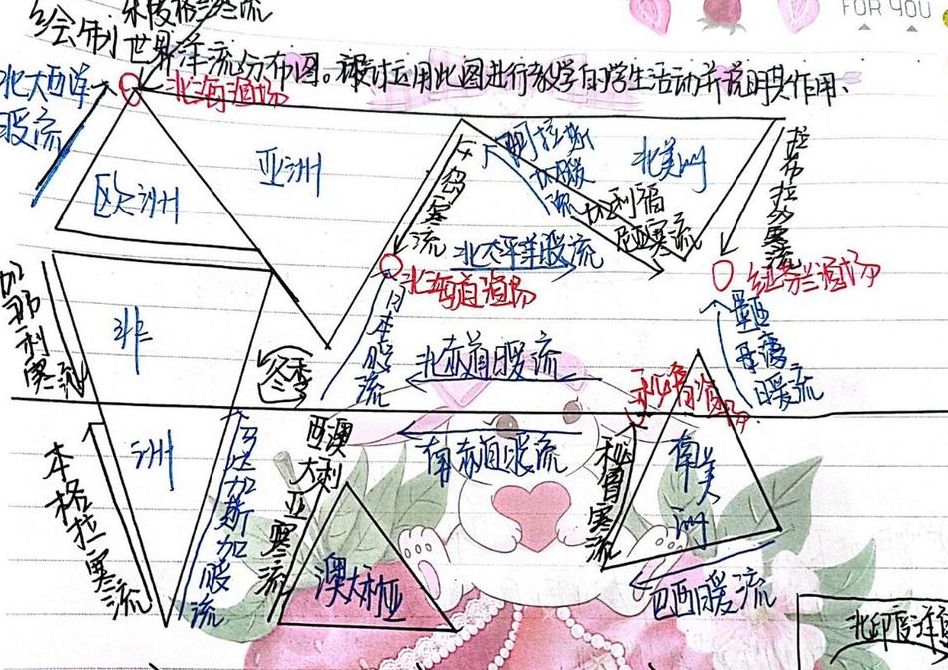 FOR YOU
绘制世界洋流分布图。设计运用此图进行教学的学生活动并说明其作用、
北大西洋暖流
北海渔场
欧洲
亚洲
千岛寒流
阿拉斯加暖流
北美洲
加利福尼亚寒流
拉布拉多寒流
北太平洋暖流
北海道渔场
纽芬兰渔场
加那利寒流
非洲
冬季
日本暖流
北赤道暖流
墨西哥湾暖流
秘鲁渔场
本格拉寒流
马达加斯加暖流
西澳大利亚寒流
南赤道暖流
秘鲁寒流
南美洲
澳大利亚
巴西暖流
北印度洋